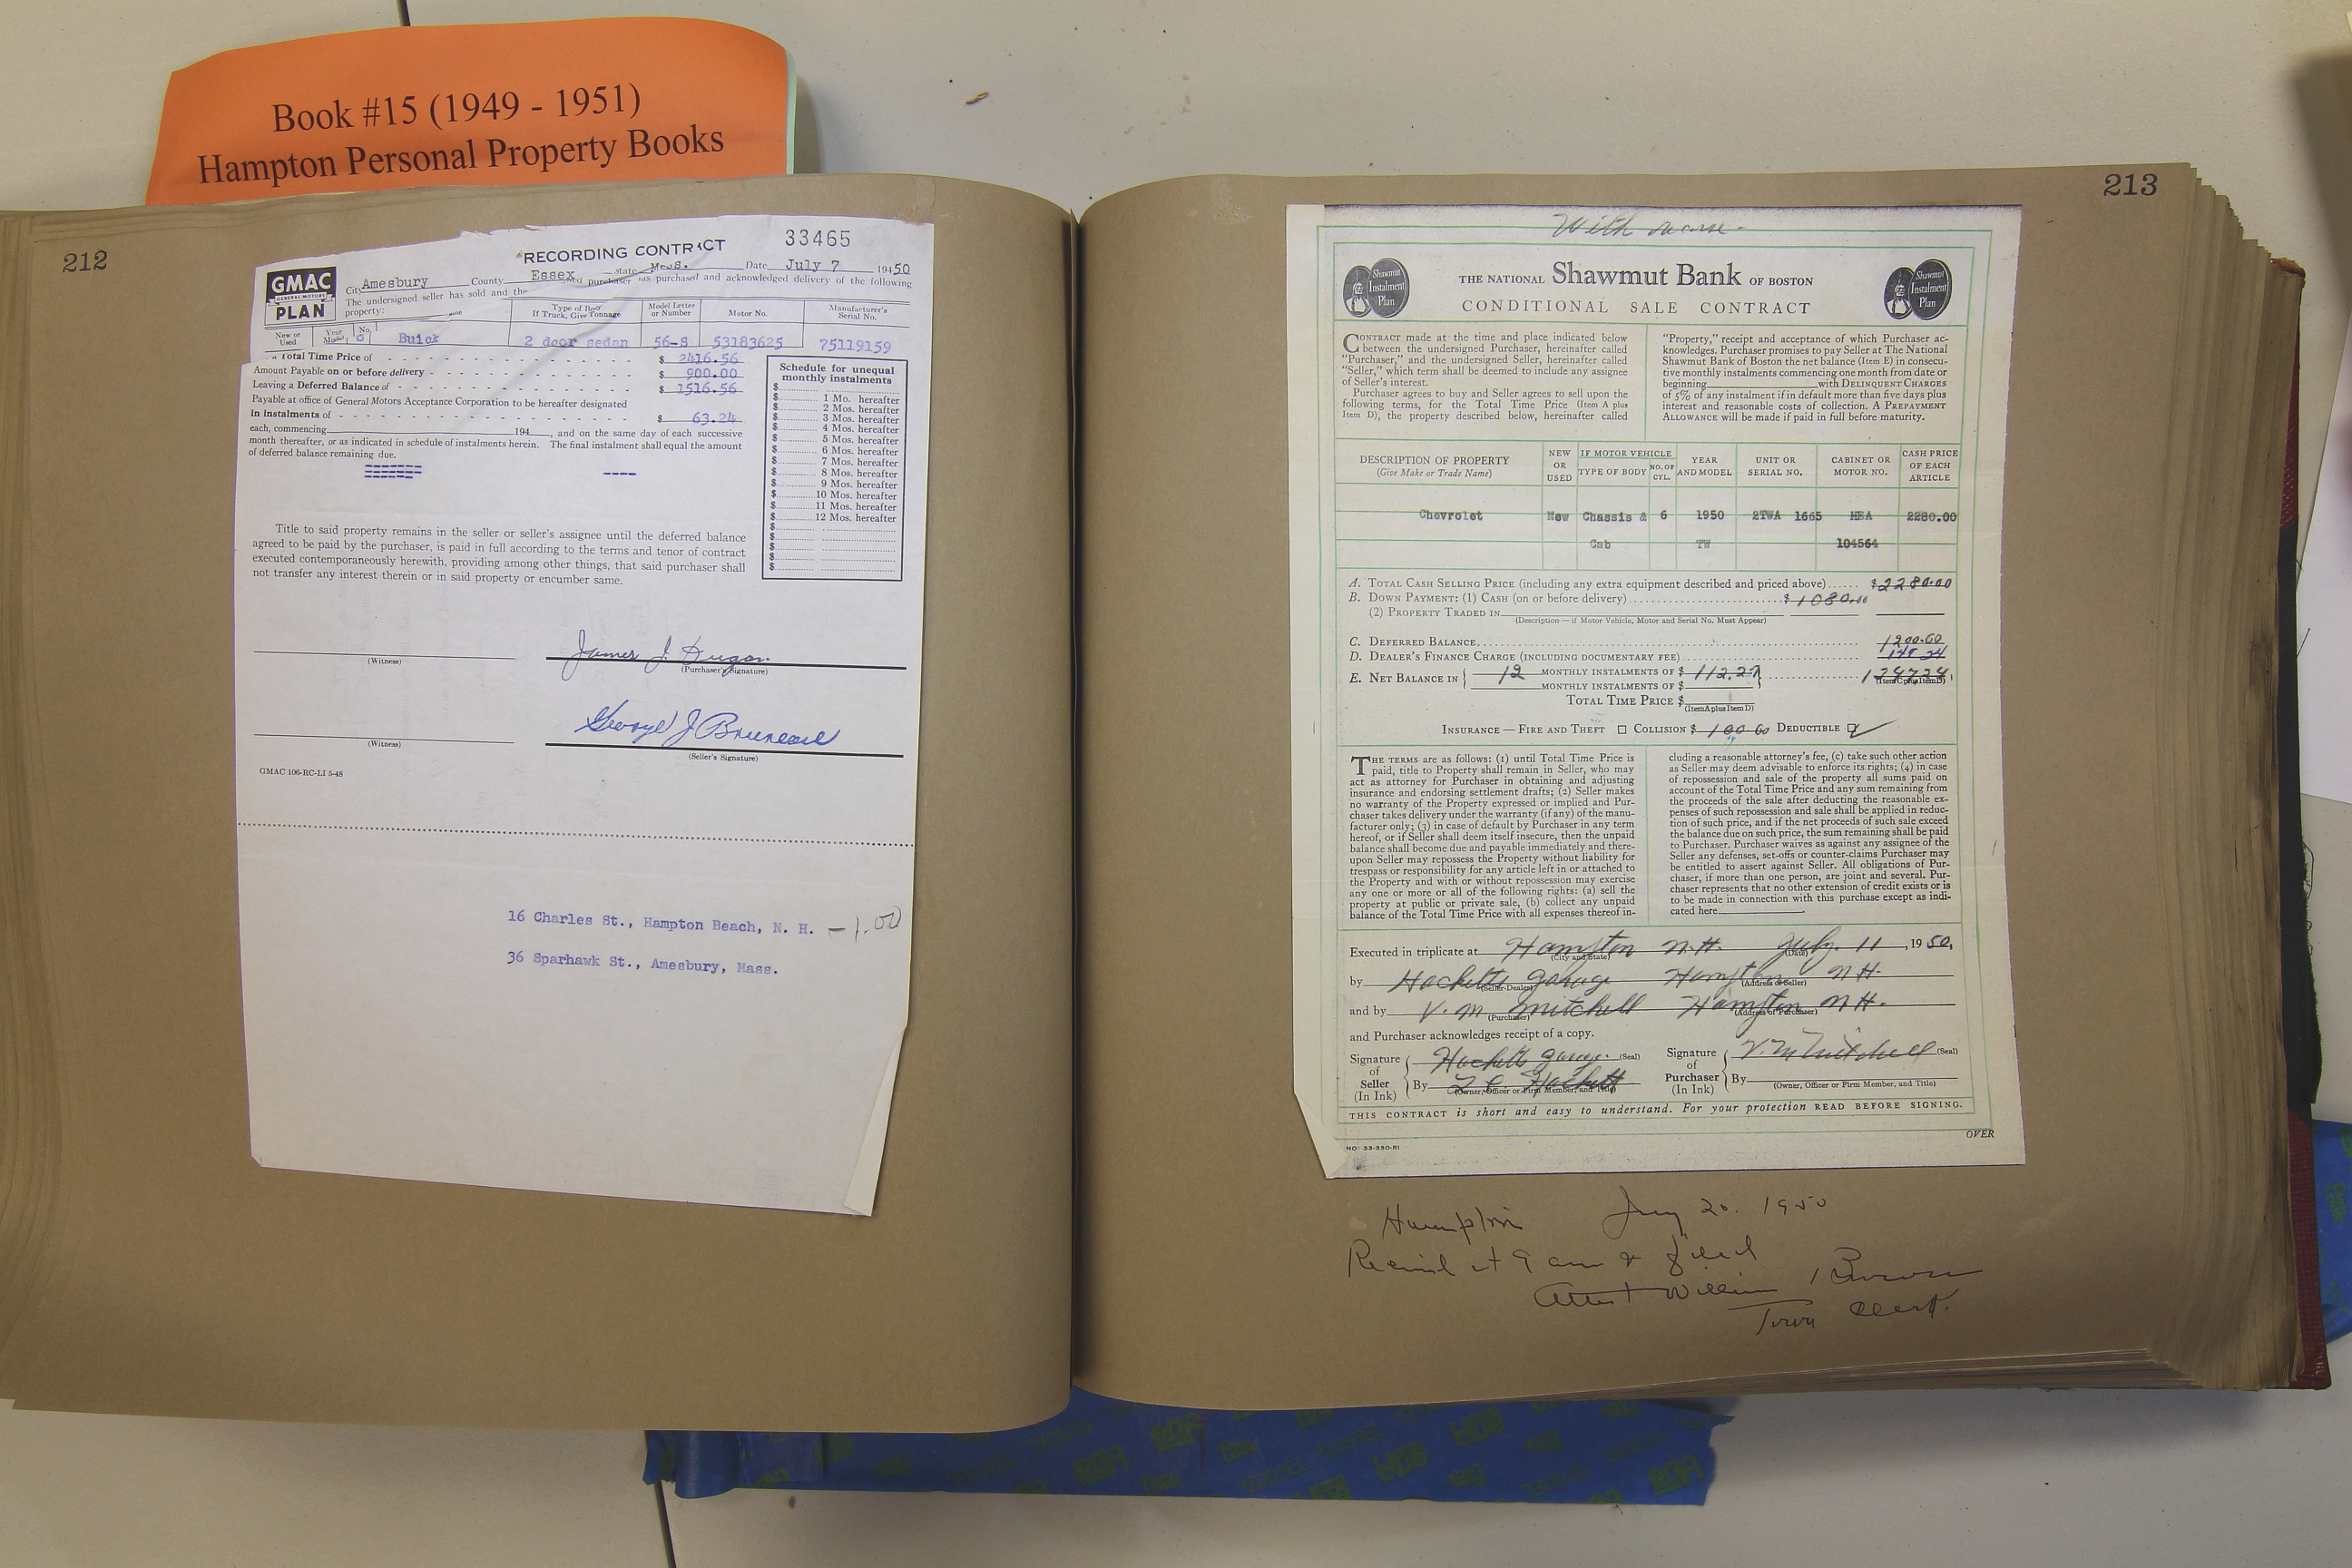 Book #15 (1949 - 1951)
Hampton Personal Property Books
212
RECORDING CONTRACT
33465
GMAC
GENERAL MOTORS
PLAN
City Amesbury County Essex State Date July 7 19450
The undersigned seller has sold and the purchaser has purchased and acknowledged delivery of the following
property:
New or Used
Year Model
No.
Type of Body If Truck, Give Tonnage
Model Letter or Number
Motor No.
Manufacturer's Serial No.
Buick 2 door sedan 56-S 53183625 75119159
Total Time Price of $ 2416.56
Amount Payable on or before delivery $ 900.00
Leaving a Deferred Balance of $ 1516.56
Payable at office of General Motors Acceptance Corporation to be hereafter designated
in instalments of $ 63.24
each, commencing 194 , and on the same day of each successive
month thereafter, or as indicated in schedule of instalments herein. The final instalment shall equal the amount
of deferred balance remaining due.
Schedule for unequal
monthly instalments
$ 1 Mo. hereafter
$ 2 Mos. hereafter
$ 3 Mos. hereafter
$ 4 Mos. hereafter
$ 5 Mos. hereafter
$ 6 Mos. hereafter
$ 7 Mos. hereafter
$ 8 Mos. hereafter
$ 9 Mos. hereafter
$ 10 Mos. hereafter
$ 11 Mos. hereafter
$ 12 Mos. hereafter
$
$
$
$
$
Title to said property remains in the seller or seller's assignee until the deferred balance
agreed to be paid by the purchaser, is paid in full according to the terms and tenor of contract
executed contemporaneously herewith, providing among other things, that said purchaser shall
not transfer any interest therein or in said property or encumber same.
James J.
(Witness) (Purchaser's Signature)
George J Bruneau
(Witness) (Seller's Signature)
GMAC 106-RC-LI 5-48
16 Charles St., Hampton Beach, N. H. — 1.00
36 Sparhawk St., Amesbury, Mass.
213
With
Shawmut Instalment Plan
THE NATIONAL Shawmut Bank OF BOSTON
CONDITIONAL SALE CONTRACT
Shawmut Instalment Plan
CONTRACT made at the time and place indicated below
between the undersigned Purchaser, hereinafter called
"Purchaser," and the undersigned Seller, hereinafter called
"Seller," which term shall be deemed to include any assignee
of Seller's interest.
Purchaser agrees to buy and Seller agrees to sell upon the
following terms, for the Total Time Price (Item A plus
Item D), the property described below, hereinafter called
"Property," receipt and acceptance of which Purchaser ac-
knowledges. Purchaser promises to pay Seller at The National
Shawmut Bank of Boston the net balance (Item E) in consecu-
tive monthly instalments commencing one month from date or
beginning with DELINQUENT CHARGES
of 5% of any instalment if in default more than five days plus
interest and reasonable costs of collection. A PREPAYMENT
ALLOWANCE will be made if paid in full before maturity.
DESCRIPTION OF PROPERTY
(Give Make or Trade Name)
NEW OR USED
IF MOTOR VEHICLE
TYPE OF BODY
NO. OF CYL.
YEAR AND MODEL
UNIT OR SERIAL NO.
CABINET OR MOTOR NO.
CASH PRICE OF EACH ARTICLE
Chevrolet New Chassis & 6 1950 2TWA 1665 HBA 2280.00
Cab TW 104564
A. TOTAL CASH SELLING PRICE (including any extra equipment described and priced above) $2280.00
B. DOWN PAYMENT: (1) CASH (on or before delivery) $1080.00
(2) PROPERTY TRADED IN
(Description — if Motor Vehicle, Motor and Serial No. Must Appear)
C. DEFERRED BALANCE 1200.00
D. DEALER'S FINANCE CHARGE (INCLUDING DOCUMENTARY FEE)
E. NET BALANCE IN 12 MONTHLY INSTALMENTS OF $ 112.27
(Item C plus Item D)
MONTHLY INSTALMENTS OF $
TOTAL TIME PRICE $
(Item A plus Item D)
INSURANCE — FIRE AND THEFT ☐ COLLISION $ 100.00 DEDUCTIBLE ☑
THE TERMS are as follows: (1) until Total Time Price is
paid, title to Property shall remain in Seller, who may
act as attorney for Purchaser in obtaining and adjusting
insurance and endorsing settlement drafts; (2) Seller makes
no warranty of the Property expressed or implied and Pur-
chaser takes delivery under the warranty (if any) of the manu-
facturer only; (3) in case of default by Purchaser in any term
hereof, or if Seller shall deem itself insecure, then the unpaid
balance shall become due and payable immediately and there-
upon Seller may repossess the Property without liability for
trespass or responsibility for any article left in or attached to
the Property and with or without repossession may exercise
any one or more or all of the following rights: (a) sell the
property at public or private sale, (b) collect any unpaid
balance of the Total Time Price with all expenses thereof in-
cluding a reasonable attorney's fee, (c) take such other action
as Seller may deem advisable to enforce its rights; (4) in case
of repossession and sale of the property all sums paid on
account of the Total Time Price and any sum remaining from
the proceeds of the sale after deducting the reasonable ex-
penses of such repossession and sale shall be applied in reduc-
tion of such price, and if the net proceeds of such sale exceed
the balance due on such price, the sum remaining shall be paid
to Purchaser. Purchaser waives as against any assignee of the
Seller any defenses, set-offs or counter-claims Purchaser may
be entitled to assert against Seller. All obligations of Pur-
chaser, if more than one person, are joint and several. Pur-
chaser represents that no other extension of credit exists or is
to be made in connection with this purchase except as indi-
cated here .
Executed in triplicate at Hampton N.H. July 11 , 1950,
(City and State) (Date)
by Hacketts Garage Hampton N.H.
(Seller-Dealer) (Address of Seller)
and by V. M Mitchell Hampton N.H.
(Purchaser) (Address of Purchaser)
and Purchaser acknowledges receipt of a copy.
Signature of Seller (In Ink) Hacketts Garage (Seal)
By Hackett
(Owner, Officer or Firm Member, and Title)
Signature of Purchaser (In Ink) V. M Mitchell (Seal)
By
(Owner, Officer or Firm Member, and Title)
THIS CONTRACT is short and easy to understand. For your protection READ BEFORE SIGNING.
OVER
NO 33-330-RI
Hampton July 20. 1950
Received at 9 am & filed
Attest William Brown
Town Clerk.